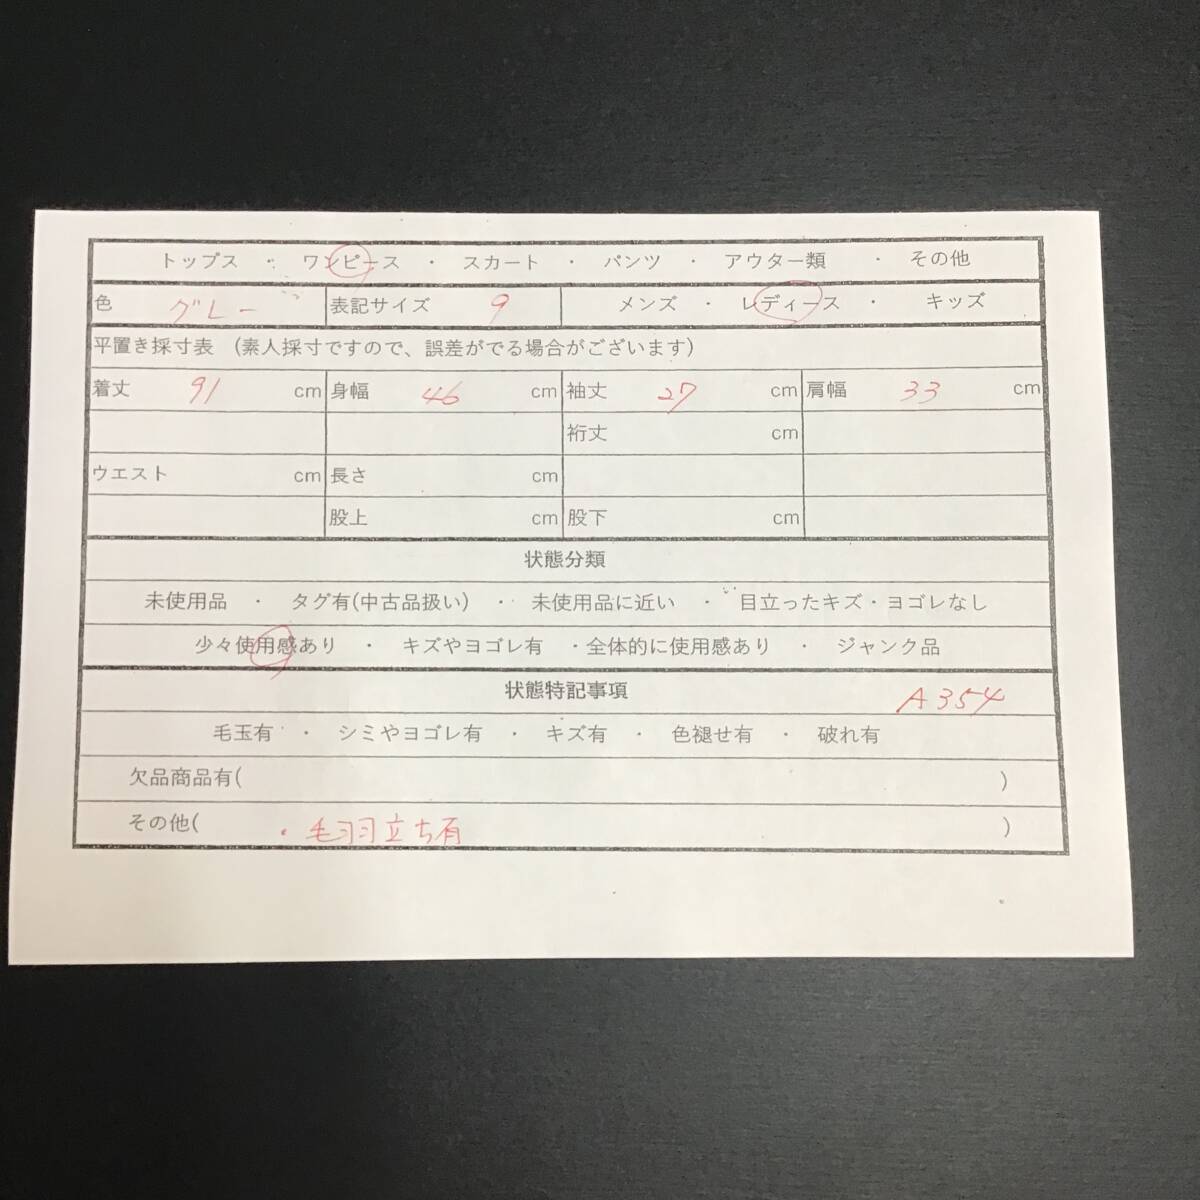 トップス ・ ワンピース ・ スカート ・ パンツ ・ アウター類 ・ その他
色 グレー 表記サイズ 9 メンズ ・ レディース ・ キッズ
平置き採寸表 (素人採寸ですので、誤差がでる場合がございます)
着丈 91 cm 身幅 46 cm 袖丈 27 cm 肩幅 33 cm
裄丈 cm
ウエスト cm 長さ cm
股上 cm 股下 cm
状態分類
未使用品 ・ タグ有(中古品扱い) ・ 未使用品に近い ・ 目立ったキズ・ヨゴレなし
少々使用感あり ・ キズやヨゴレ有 ・全体的に使用感あり ・ ジャンク品
状態特記事項 A354
毛玉有 ・ シミやヨゴレ有 ・ キズ有 ・ 色褪せ有 ・ 破れ有
欠品商品有( )
その他( ・毛羽立ち有 )